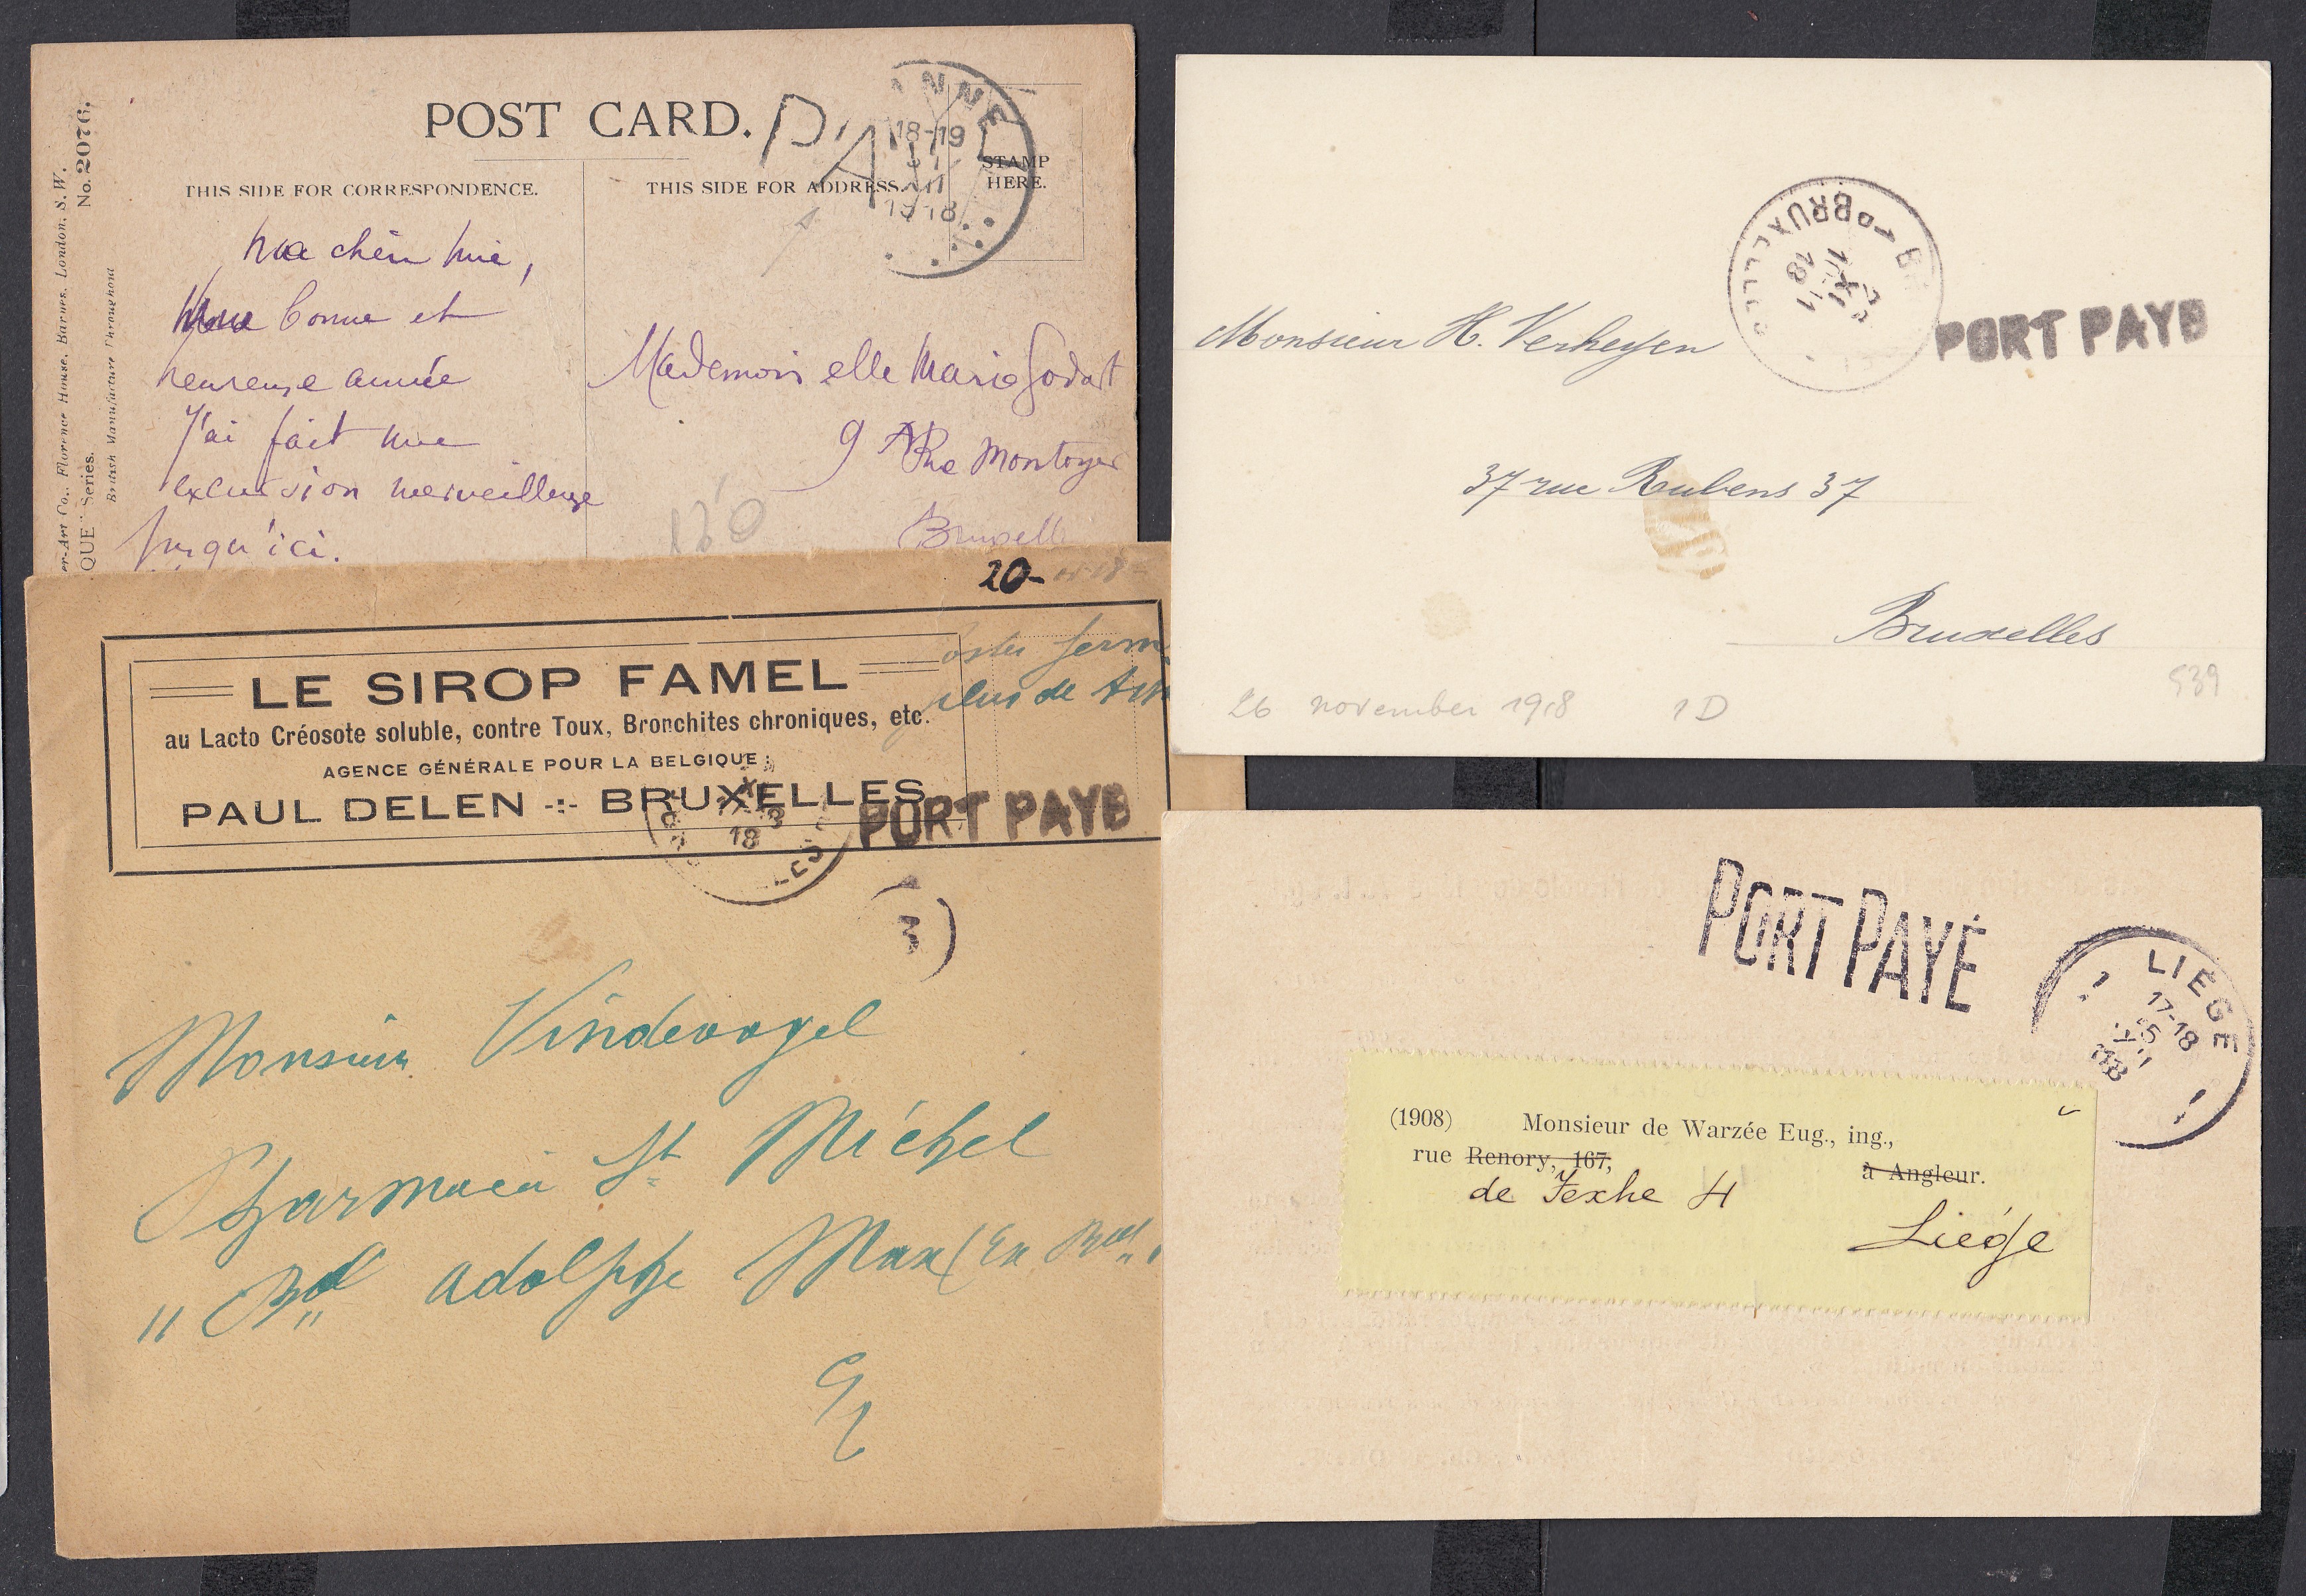 POST CARD.
THIS SIDE FOR CORRESPONDENCE.
THIS SIDE FOR ADDRESS.
STAMP
HERE.
P.P.
NNE
18-19
1918
No. 2076.
Co., Florence House, Barnes, London, S.W.
QUE" Series.
British Manufacture Throughout
Ma chère Mie,
bonne et
heureuse année
J'ai fait une
excursion merveilleuse
jusqu'ici.
Mademoiselle Marie Godart
9 A Rue Montoyer
Bruxell
120
20-
LE SIROP FAMEL
au Lacto Créosote soluble, contre Toux, Bronchites chroniques, etc.
AGENCE GÉNÉRALE POUR LA BELGIQUE:
PAUL DELEN -:- BRUXELLES
plus de
18
PORT PAYÉ
3
Monsieur Vindevogel
Pharmacie St Michel
11 Bd Adolphe Max (En
BRUXELLES
BR
18
PORT PAYÉ
Monsieur H. Verheyen
37 rue Rubens 37
Bruxelles
26 november 1918 1D
539
PORT PAYÉ
LIEGE
17-18
(1908) Monsieur de Warzée Eug., ing.,
rue Renory, 167, à Angleur.
de Fexhe 4
Liége